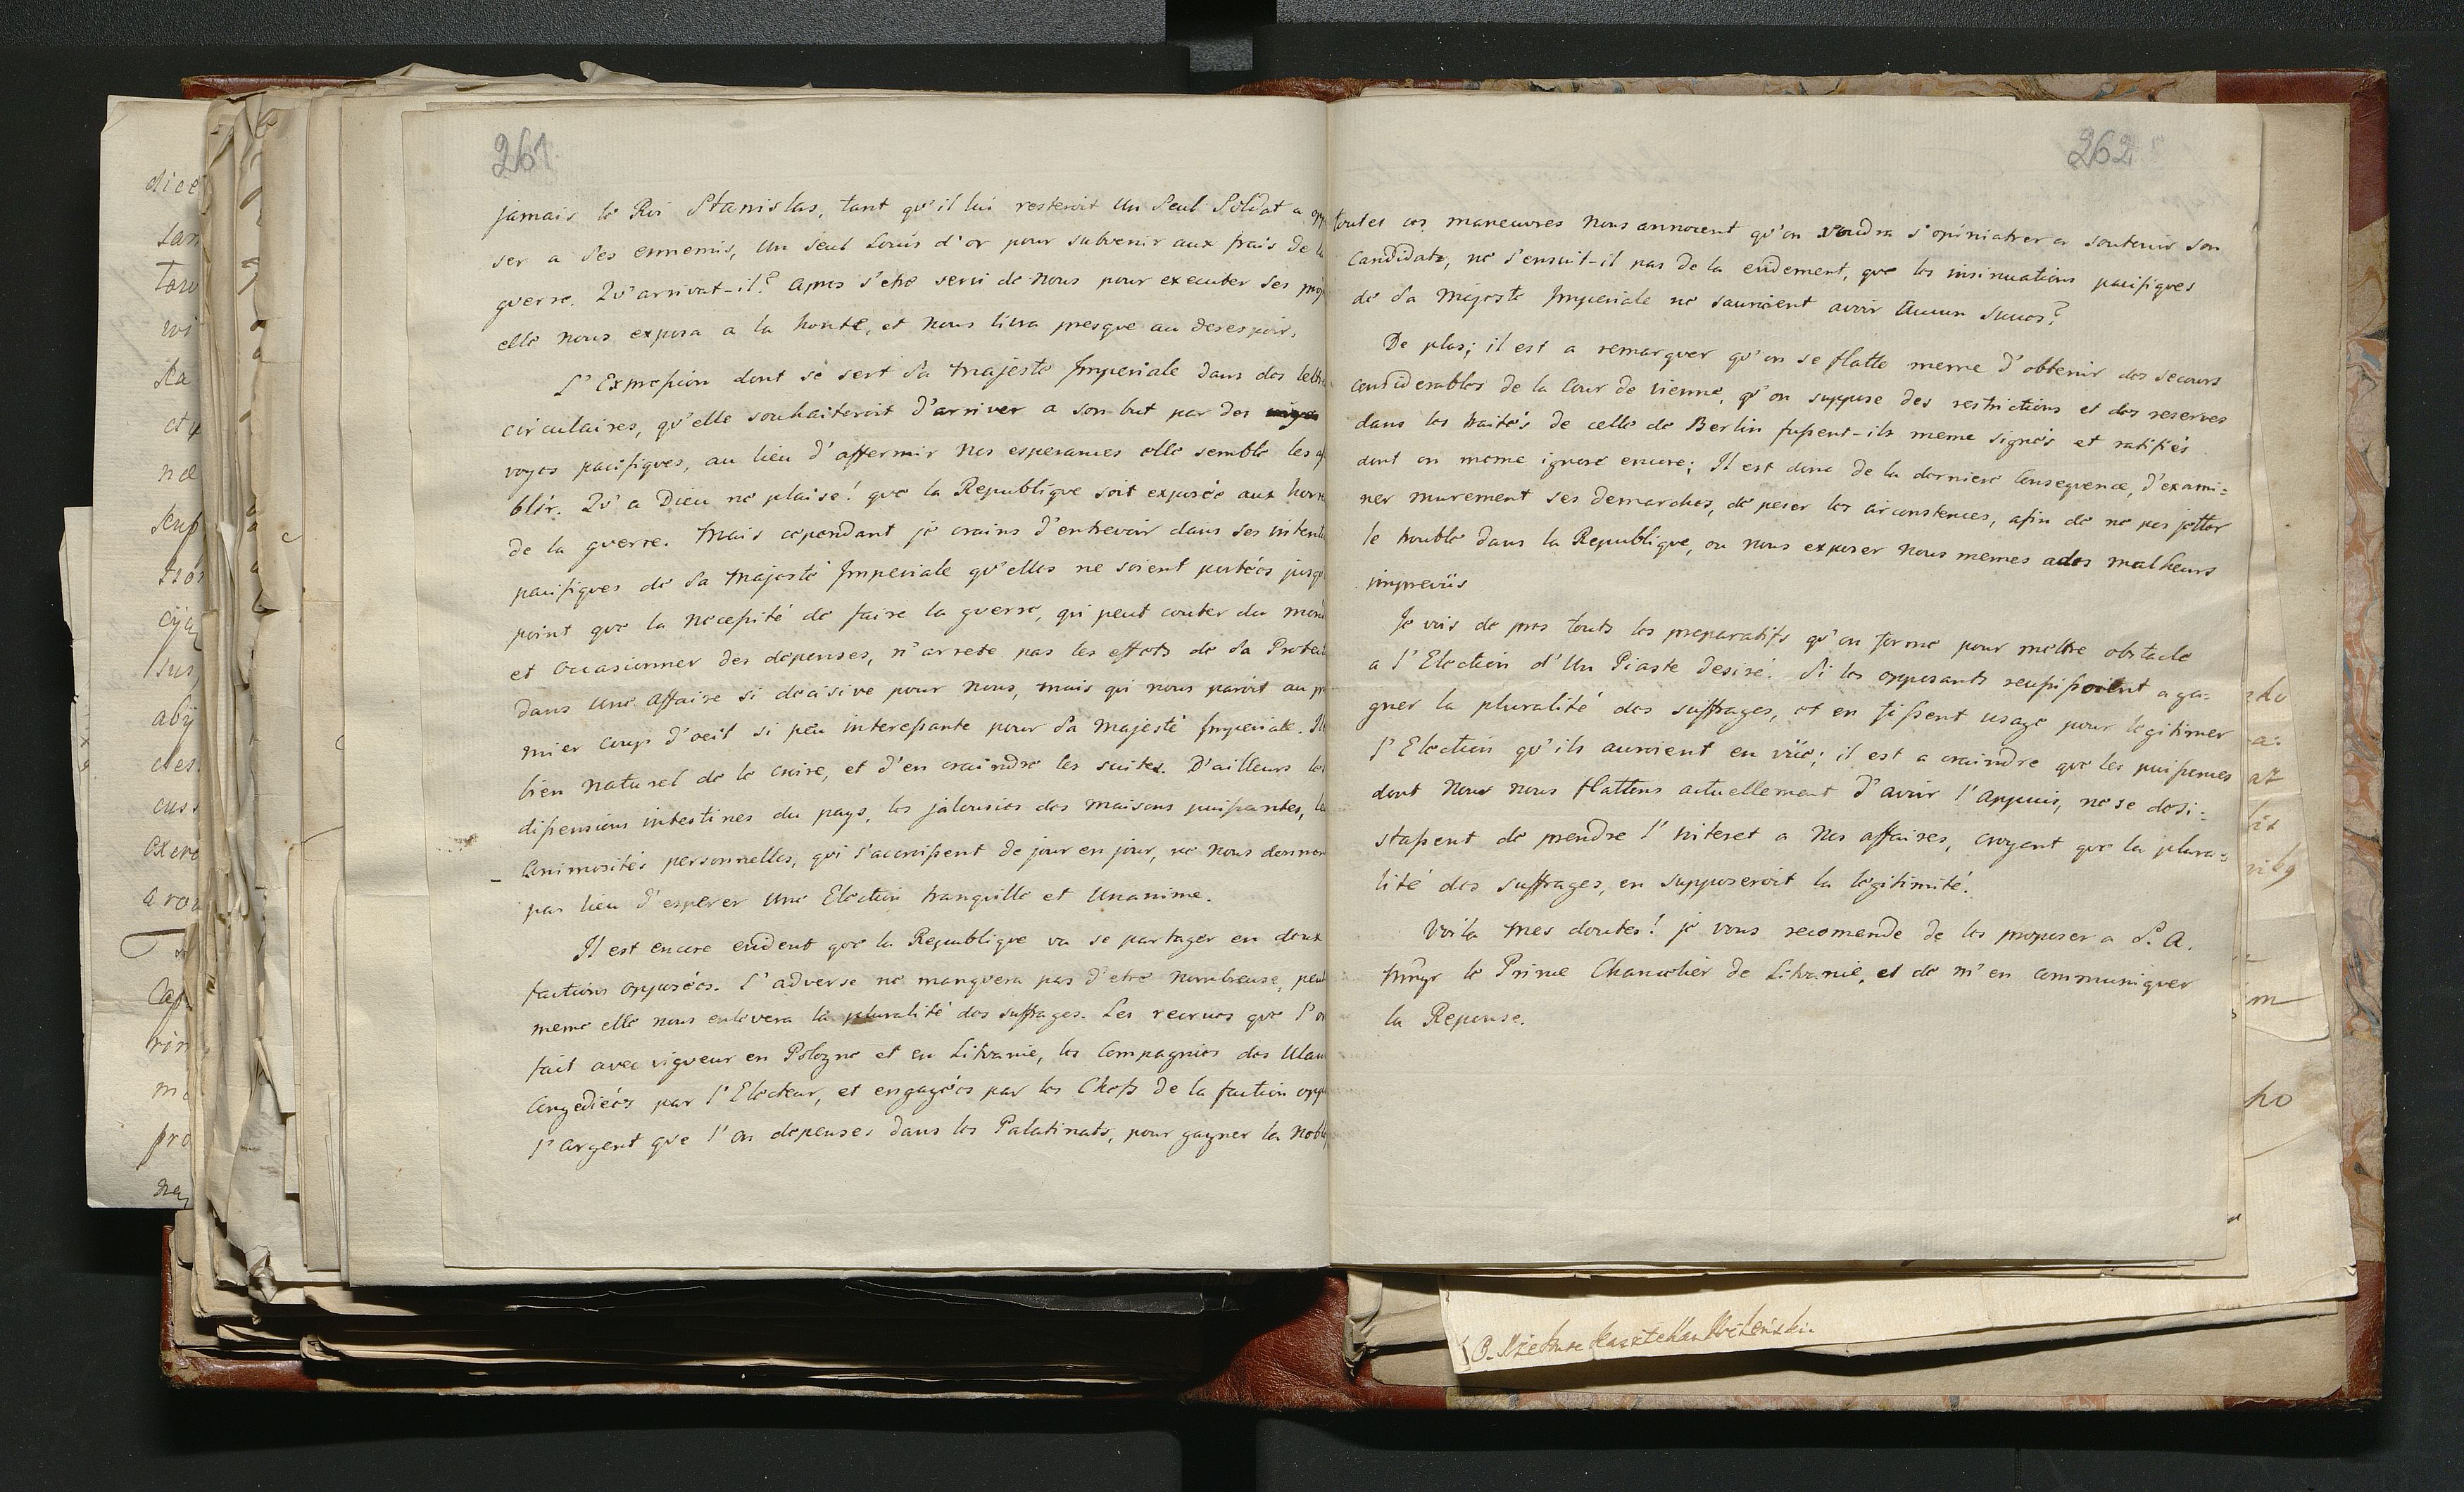 261
jamais le Roi Stanislas, tant qu'il lui resteroit un seul Soldat a
ser a ses ennemis, un seul Louis d'or pour subvenir aux frais de la
guerre. Qu'arrivat-il? Apres s'etre servi de nous pour executer ses proj
elle nous exposa a la honte, et nous livra presque au desespoir.
L'Expression dont se sert Sa Majesté Imperiale dans des lettre
circulaires, qu'elle souhaiteroit d'arriver a son but par des
voyes pacifiques, au lieu d'affermir nos esperances elle semble les
blir. Qu'a Dieu ne plaise! que la Republique soit exposée aux horre
de la guerre. Mais cependant je crains d'entrevoir dans ses intenti
pacifiques de Sa Majesté Imperiale qu'elles ne soient portées jusqu
point que la necessité de faire la guerre, qui peut couter du mond
et occasionner des depenses, n'arrete pas les effets de Sa Protect
dans une affaire si decisive pour nous, mais qui nous paroit au pr
mier coup d'oeil si peu interessante pour Sa Majesté Imperiale. Il
bien naturel de le croire, et d'en craindre les suites. D'ailleurs les
dissensions intestines du pays, les jalousies des maisons puissantes, le
animosités personnelles, qui s'accroissent de jour en jour, ne nous donnen
pas lieu d'esperer une Election tranquille et unanime.
Il est encore evident que la Republique va se partager en deux
factions opposées. L'adverse ne manquera pas d'etre nombreuse, peut
meme elle nous enlevera la pluralité des suffrages. Les recrues que l'on
fait avec vigueur en Pologne et en Litvanie, les Compagnies des Ulan
congediées par l'Electeur, et engagées par les Chefs de la faction oppo
l'argent que l'on depenses dans les Palatinats, pour gagner la Nobl
262
toutes ces maneuvres nous annoncent qu'on voudra s'opiniatrer a soutenir son
Candidate, ne s'ensuit-il pas de la evidement, que les insinuations pacifiques
de Sa Majesté Imperiale ne sauroient avoir aucun succes?
De plus; il est a remarquer qu'on se flatte meme d'obtenir des secours
considerables de la Cour de Vienne, qu'on suppose des restrictions et des reserves
dans les traités de celle de Berlin fussent-ils meme signés et ratifiés
dont on meme ignore encore; Il est donc de la derniere Consequence, d'exami=
ner murement ses demarches, de peser les circonstences, afin de ne pas jetter
le trouble dans la Republique, ou nous exposer nous memes a des malheurs
imprevüs
Je vois de pres touts les preparatifs qu'on forme pour mettre obstacle
a l'Election d'Un Piaste desiré. Si les opposants reussissoient a ga=
gner la pluralité des suffrages, et en fissent usage pour legitimer
l'Election qu'ils auroient en vüe; il est a craindre que les puissences
dont Nous nous flattons actuellement d'avoir l'appuis, ne se desi=
stassent de prendre l'interet a Nos affaires, croyent que la plura=
lité des suffrages, en supposeroit la legitimité.
Voila mes doutes! je vous recomende de les proposer a S. A.
Mngr le Prince Chancelier de Litvanie, et de m'en communiquer
la Reponse.